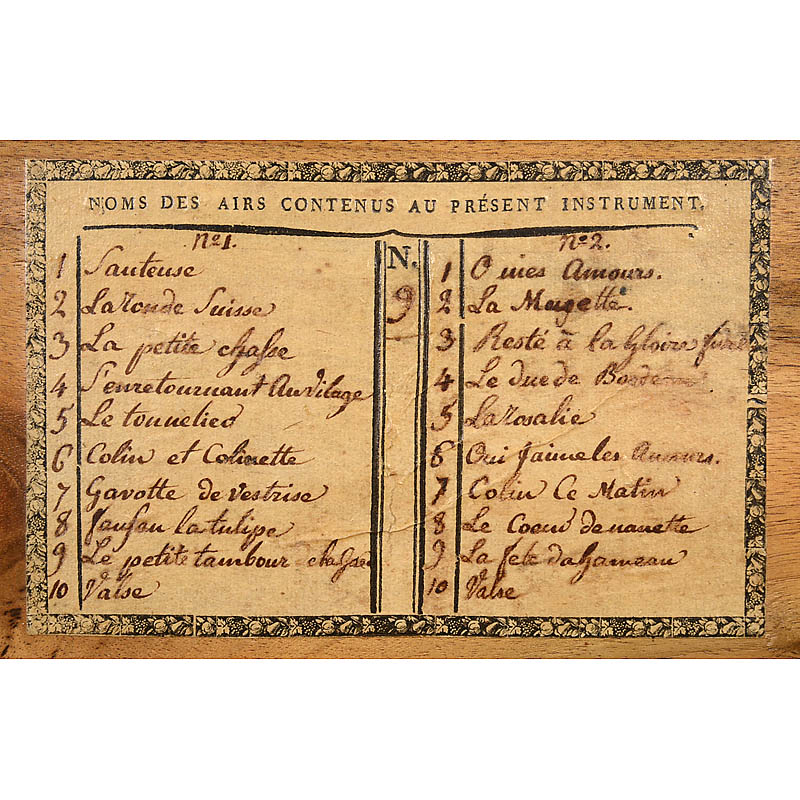 NOMS DES AIRS CONTENUS AU PRÉSENT INSTRUMENT.
Nº1.
1 Sauteuse
2 La ronde Suisse
3 La petite chasse
4 S'enretournant Au Vilage
5 Le tonnelied
6 Colin et Colinette
7 Gavotte de vestrise
8 la tulipe
9 Le petite tambour chasse
10 Valse
N.
9
Nº2.
1 O mes Amours.
2 La Mugette.
3 Reste à la Gloire
4 Le duc de
5 La rosalie
6 Oui J'aime les Amours.
7 Colin Ce Matin
8 Le Coeur de nanette
9 La fete da hameau
10 Valse